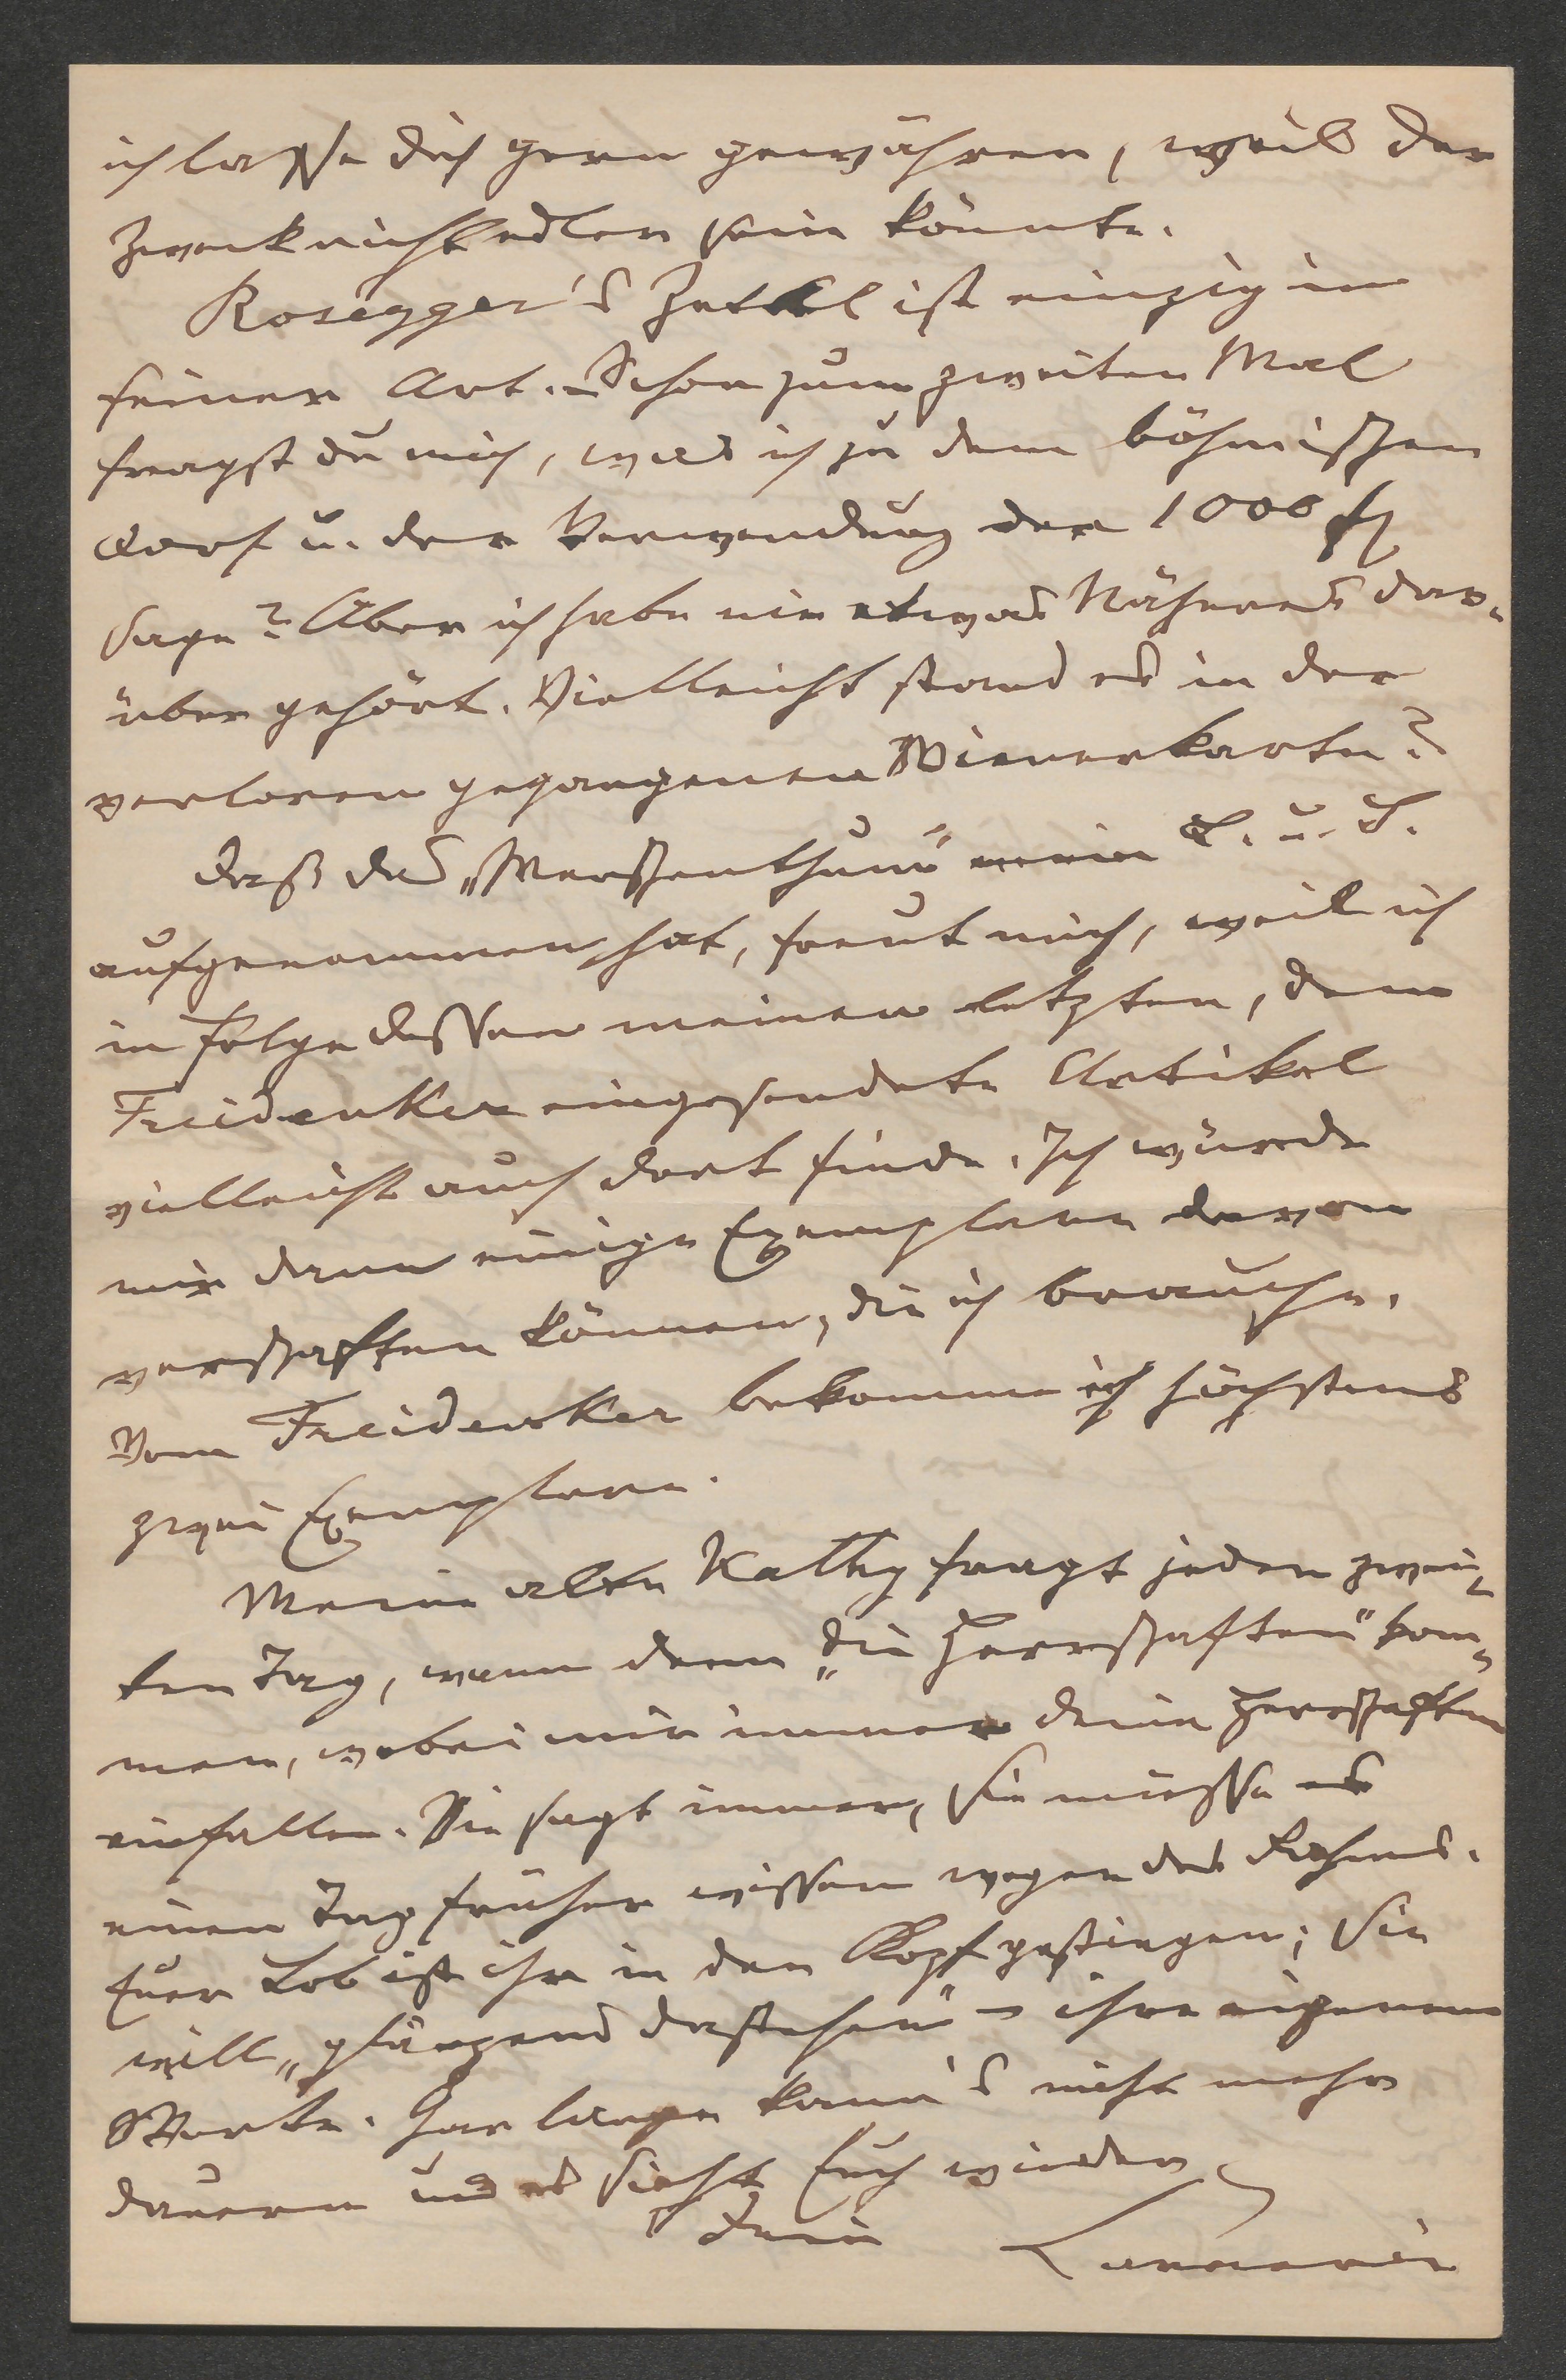 ich lasse dich gern gewähren, weil der
Zweck nicht edler sein könnte.
Rosegger's Zettel ist einzig in
seiner Art. – Schon zum zweiten Mal
fragst du mich, was ich zu dem böhmischen
Dorf u. der Verwendung der 1000 fl
sage? Aber ich habe nie etwas Näheres dar-
über gehört. Vielleicht stand es in der
verloren gegangenen Wienerkarte?
Daß das „Menschenthum" mein L. u. T.
aufgenommen hat, freut mich, weil ich
in Folge dessen meinen letzten, dem
Freidenker eingesendete Artikel
vielleicht auch dort finde. Ich würde
mir dann einige Exemplare davon
verschaffen können, die ich brauche.
Vom Freidenker bekomme ich höchstens
zwei Exemplare.
Meine alte Kathy fragt jeden zwei-
ten Tag, wann denn „die Herrschaften" kom-
men, wobei mir immer deine Herrschaften
einfallen. Sie sagt immer, sie müsse es
einen Tag früher wissen wegen des Rahms.
Euer Lob ist ihr in den Kopf gestiegen; sie
will „glänzend dastehen" – ihre eigenen
Worte. Gar lange kann's nicht mehr
dauern und es sieht Euch wieder
Dein Carneri